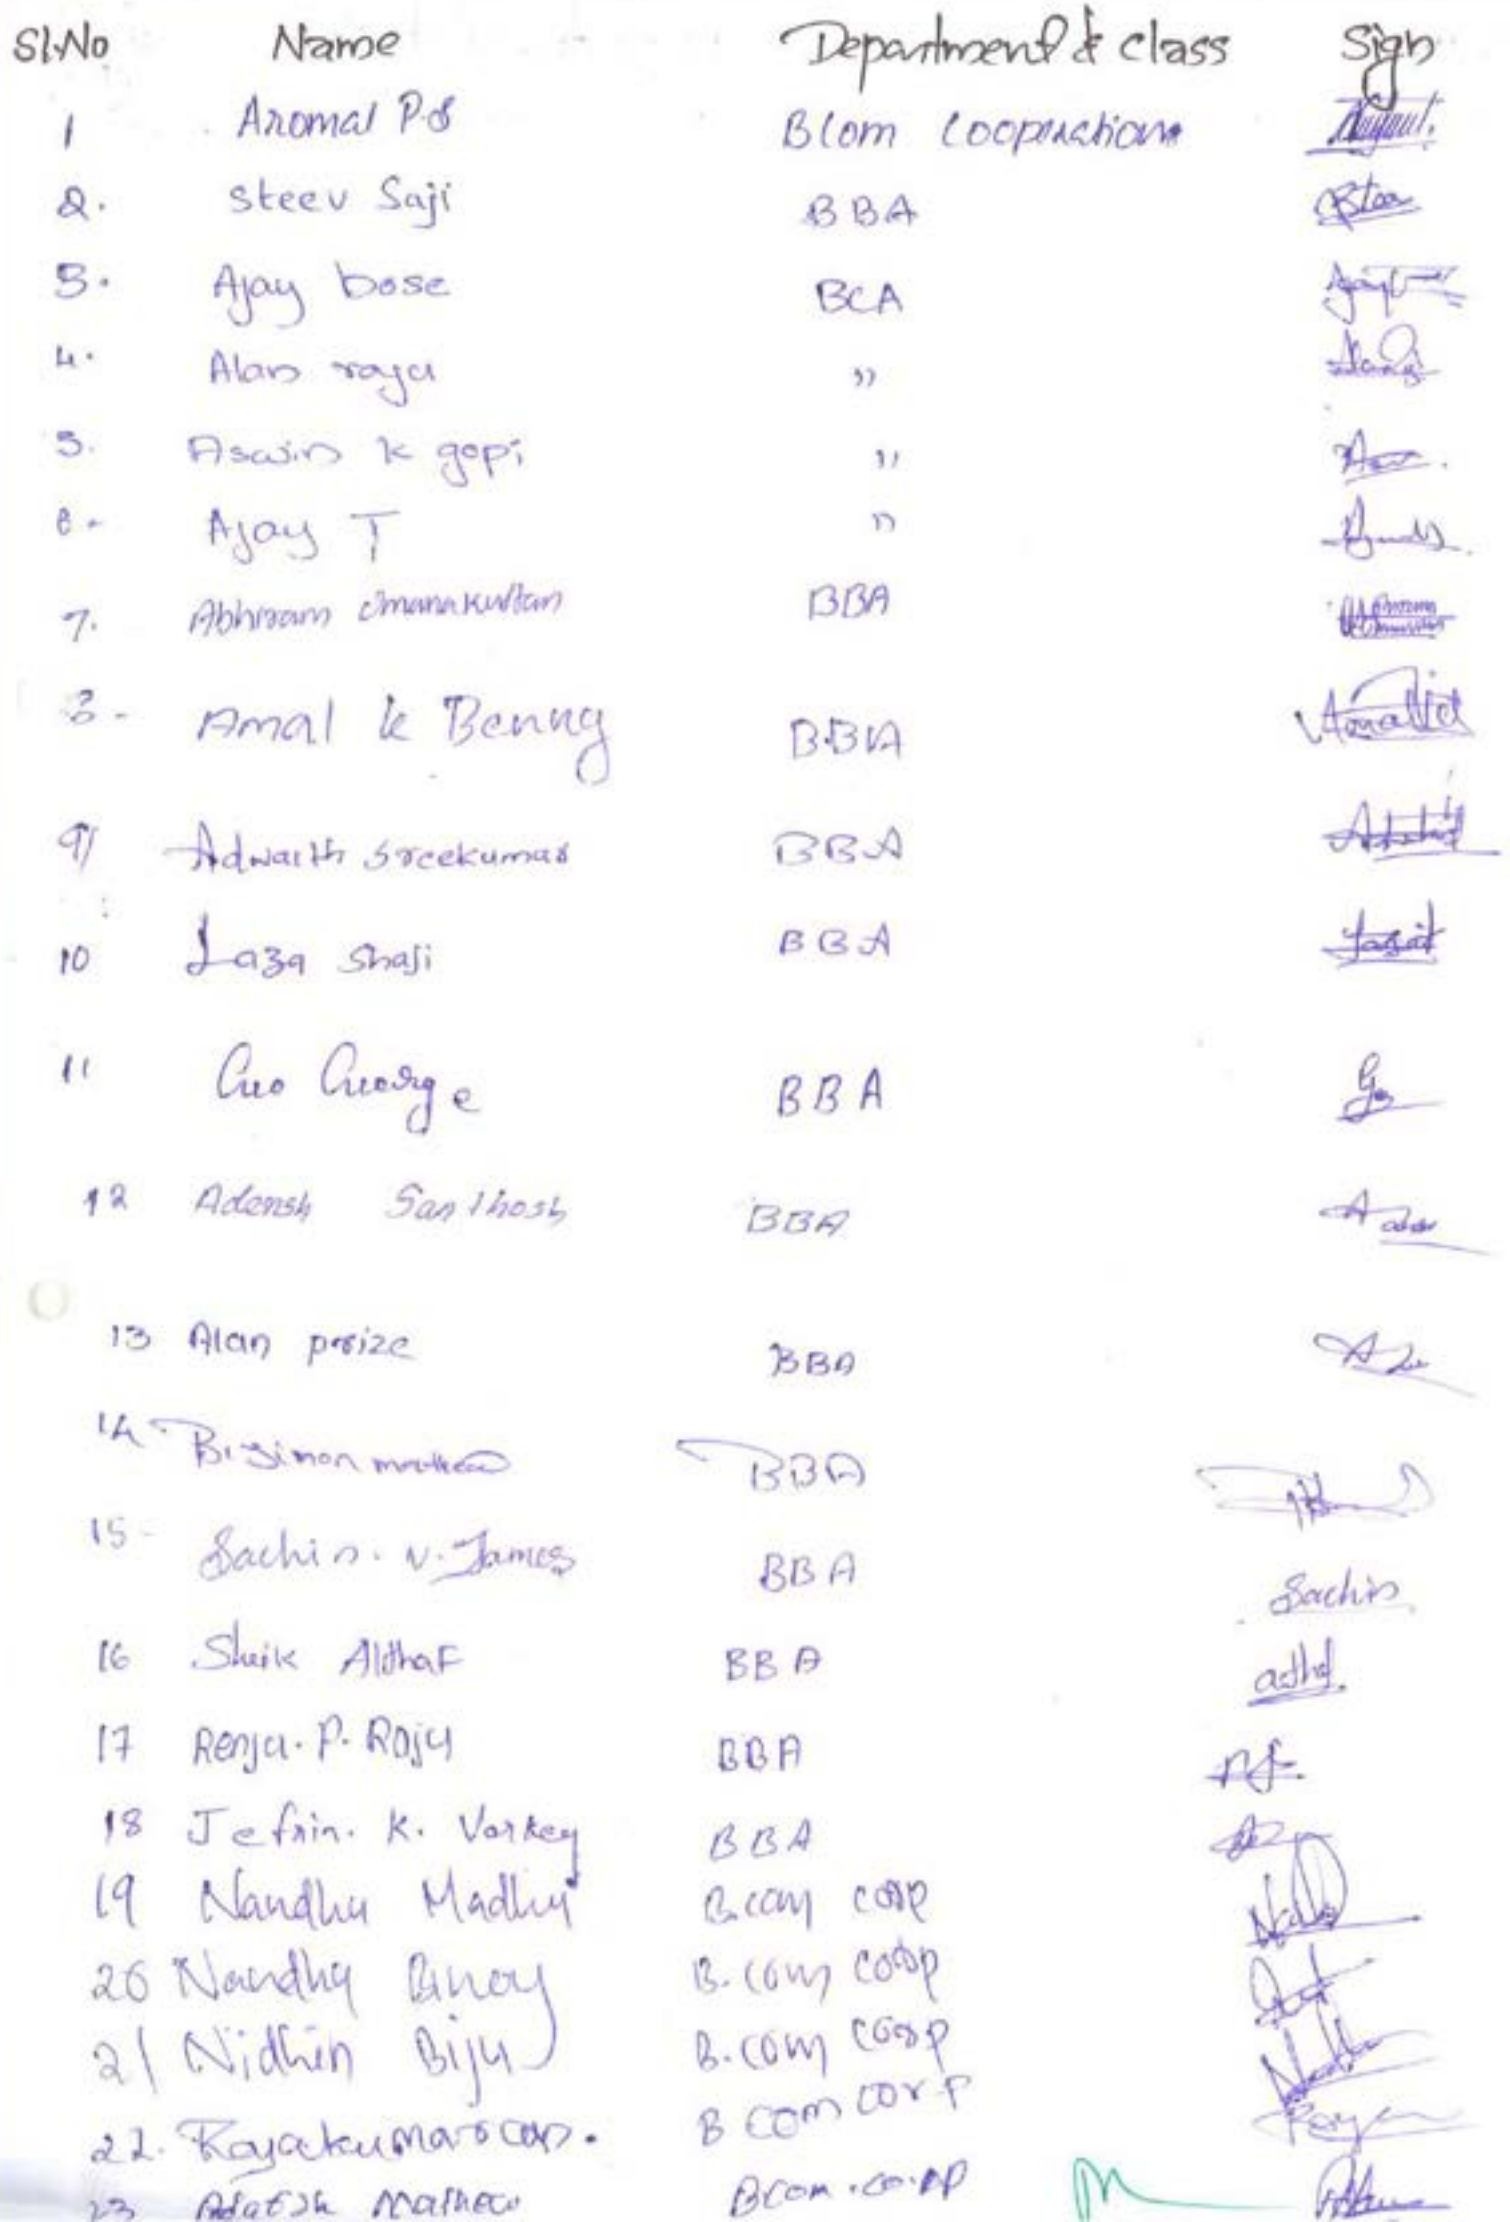 Sl.No Name Department & class Sign
1 Aromal P.S BCom Cooperation
2. Steev Saji BBA
3. Ajay bose BCA
4. Alan raju "
5. Aswin k gopi "
6. Ajay T "
7. Abhiram Omanakuttan BBA
8. Amal k Benny BBA
9 Adwaith Sreekumar BBA
10 Laza Shaji BBA
11 Geo George BBA
12 Adersh Santhosh BBA
13 Alan prize BBA
14 Bijimon mathew BBA
15 Sachin. N. James BBA Sachin
16 Sheik Althaf BBA
17 Renju. P. Raju BBA
18 Jefrin. K. Varkey BBA
19 Nandhu Madhu B.com corp
20 Nandhu Binoy B.com coop
21 Nidhin Biju B.com coop
22. B com corp
23 Mathew Bcom.co.op